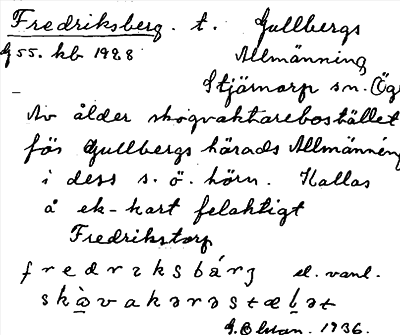 Fredriksberg. t. Gullbergs
G 55. kb 1928 Allmänning
Stjärnorp sn. (Ög
Av ålder skogvaktarebostället
för Gullbergs härads Allmänning
i dess s.ö. hörn. Kallas
å ek-kart felaktigt
Fredrikstorp
fredrɩksbárʒ el. vanl.
skò̱vakərəstæḷət
1936.